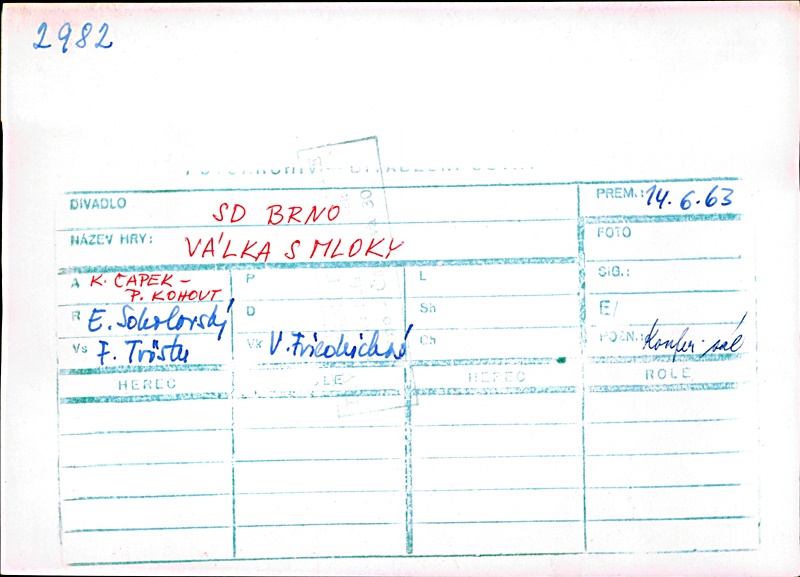 2982
DIVADLO SD BRNO PREM.: 14.6.63
NÁZEV HRY: VÁLKA S MLOKY FOTO
A K. ČAPEK – P. KOHOUT P L SIG.:
R E. Sokolovský D Sh E/
Vs F. Tröster Vk V. Friedrichová Ch POZN.: Konfer. sál
HEREC ROLE HEREC ROLE